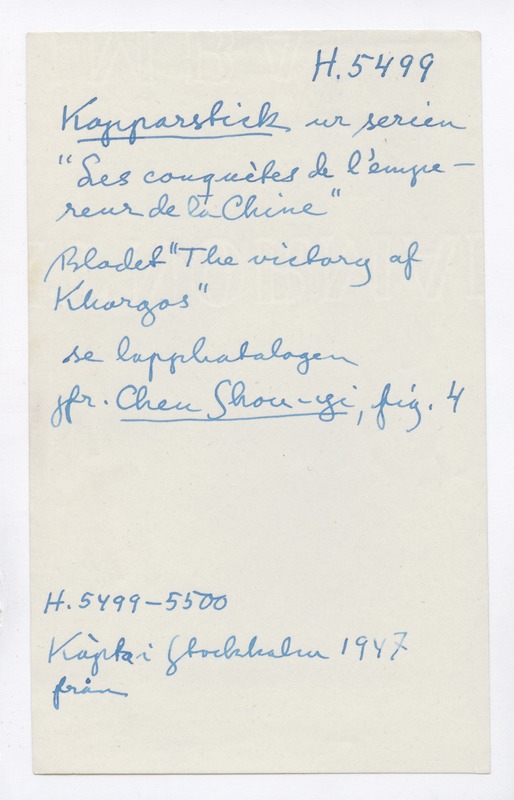 H.5499
Kopparstick ur serien
"Les conquêtes de l'empe-
reur de la Chine"
Bladet "The victory of
Khorgos"
se lappkatalogen
jfr. Chen Shou-yi, fig. 4
H.5499-5500
Köpta i Stockholm 1947
från